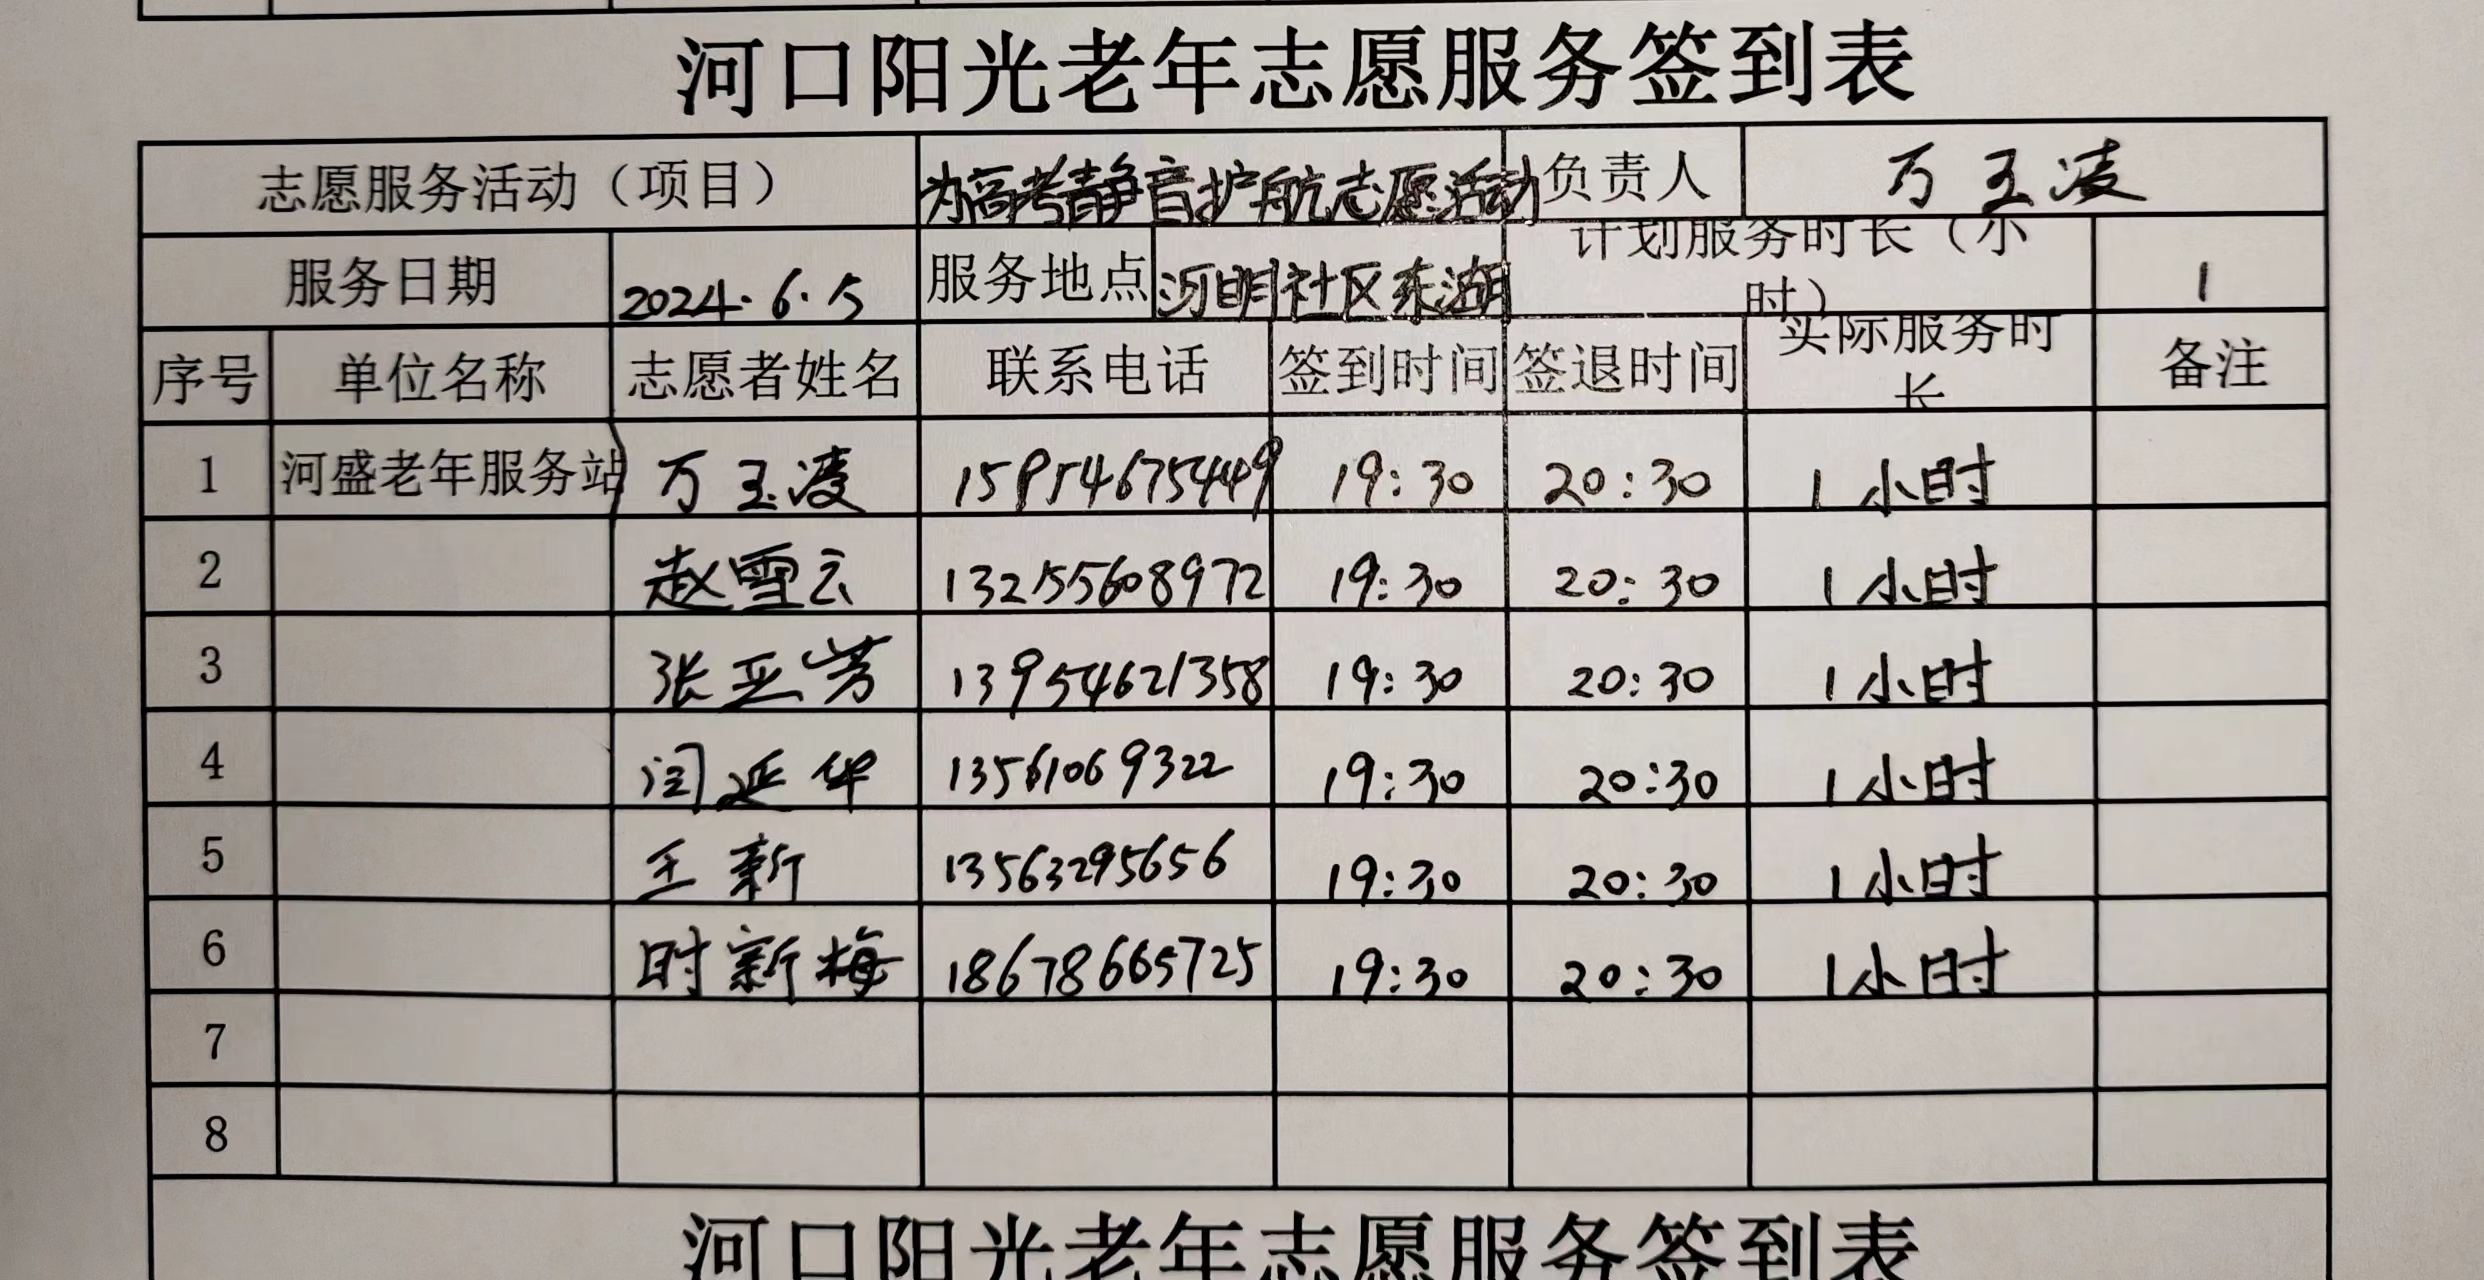 河口阳光老年志愿服务签到表
志愿服务活动（项目） 为高考静音护航志愿活动 负责人 万玉凌
服务日期 2024.6.5 服务地点 河明社区东湖 计划服务时长（小时） 1
序号 单位名称 志愿者姓名 联系电话 签到时间 签退时间 实际服务时长 备注
1 河盛老年服务站 万玉凌 15954675449 19:30 20:30 1小时
2 赵雪云 13255608972 19:30 20:30 1小时
3 张亚芳 13954621358 19:30 20:30 1小时
4 闫延华 13561069322 19:30 20:30 1小时
5 王新 13563295656 19:30 20:30 1小时
6 时新梅 18678665725 19:30 20:30 1小时
7
8
河口阳光老年志愿服务签到表